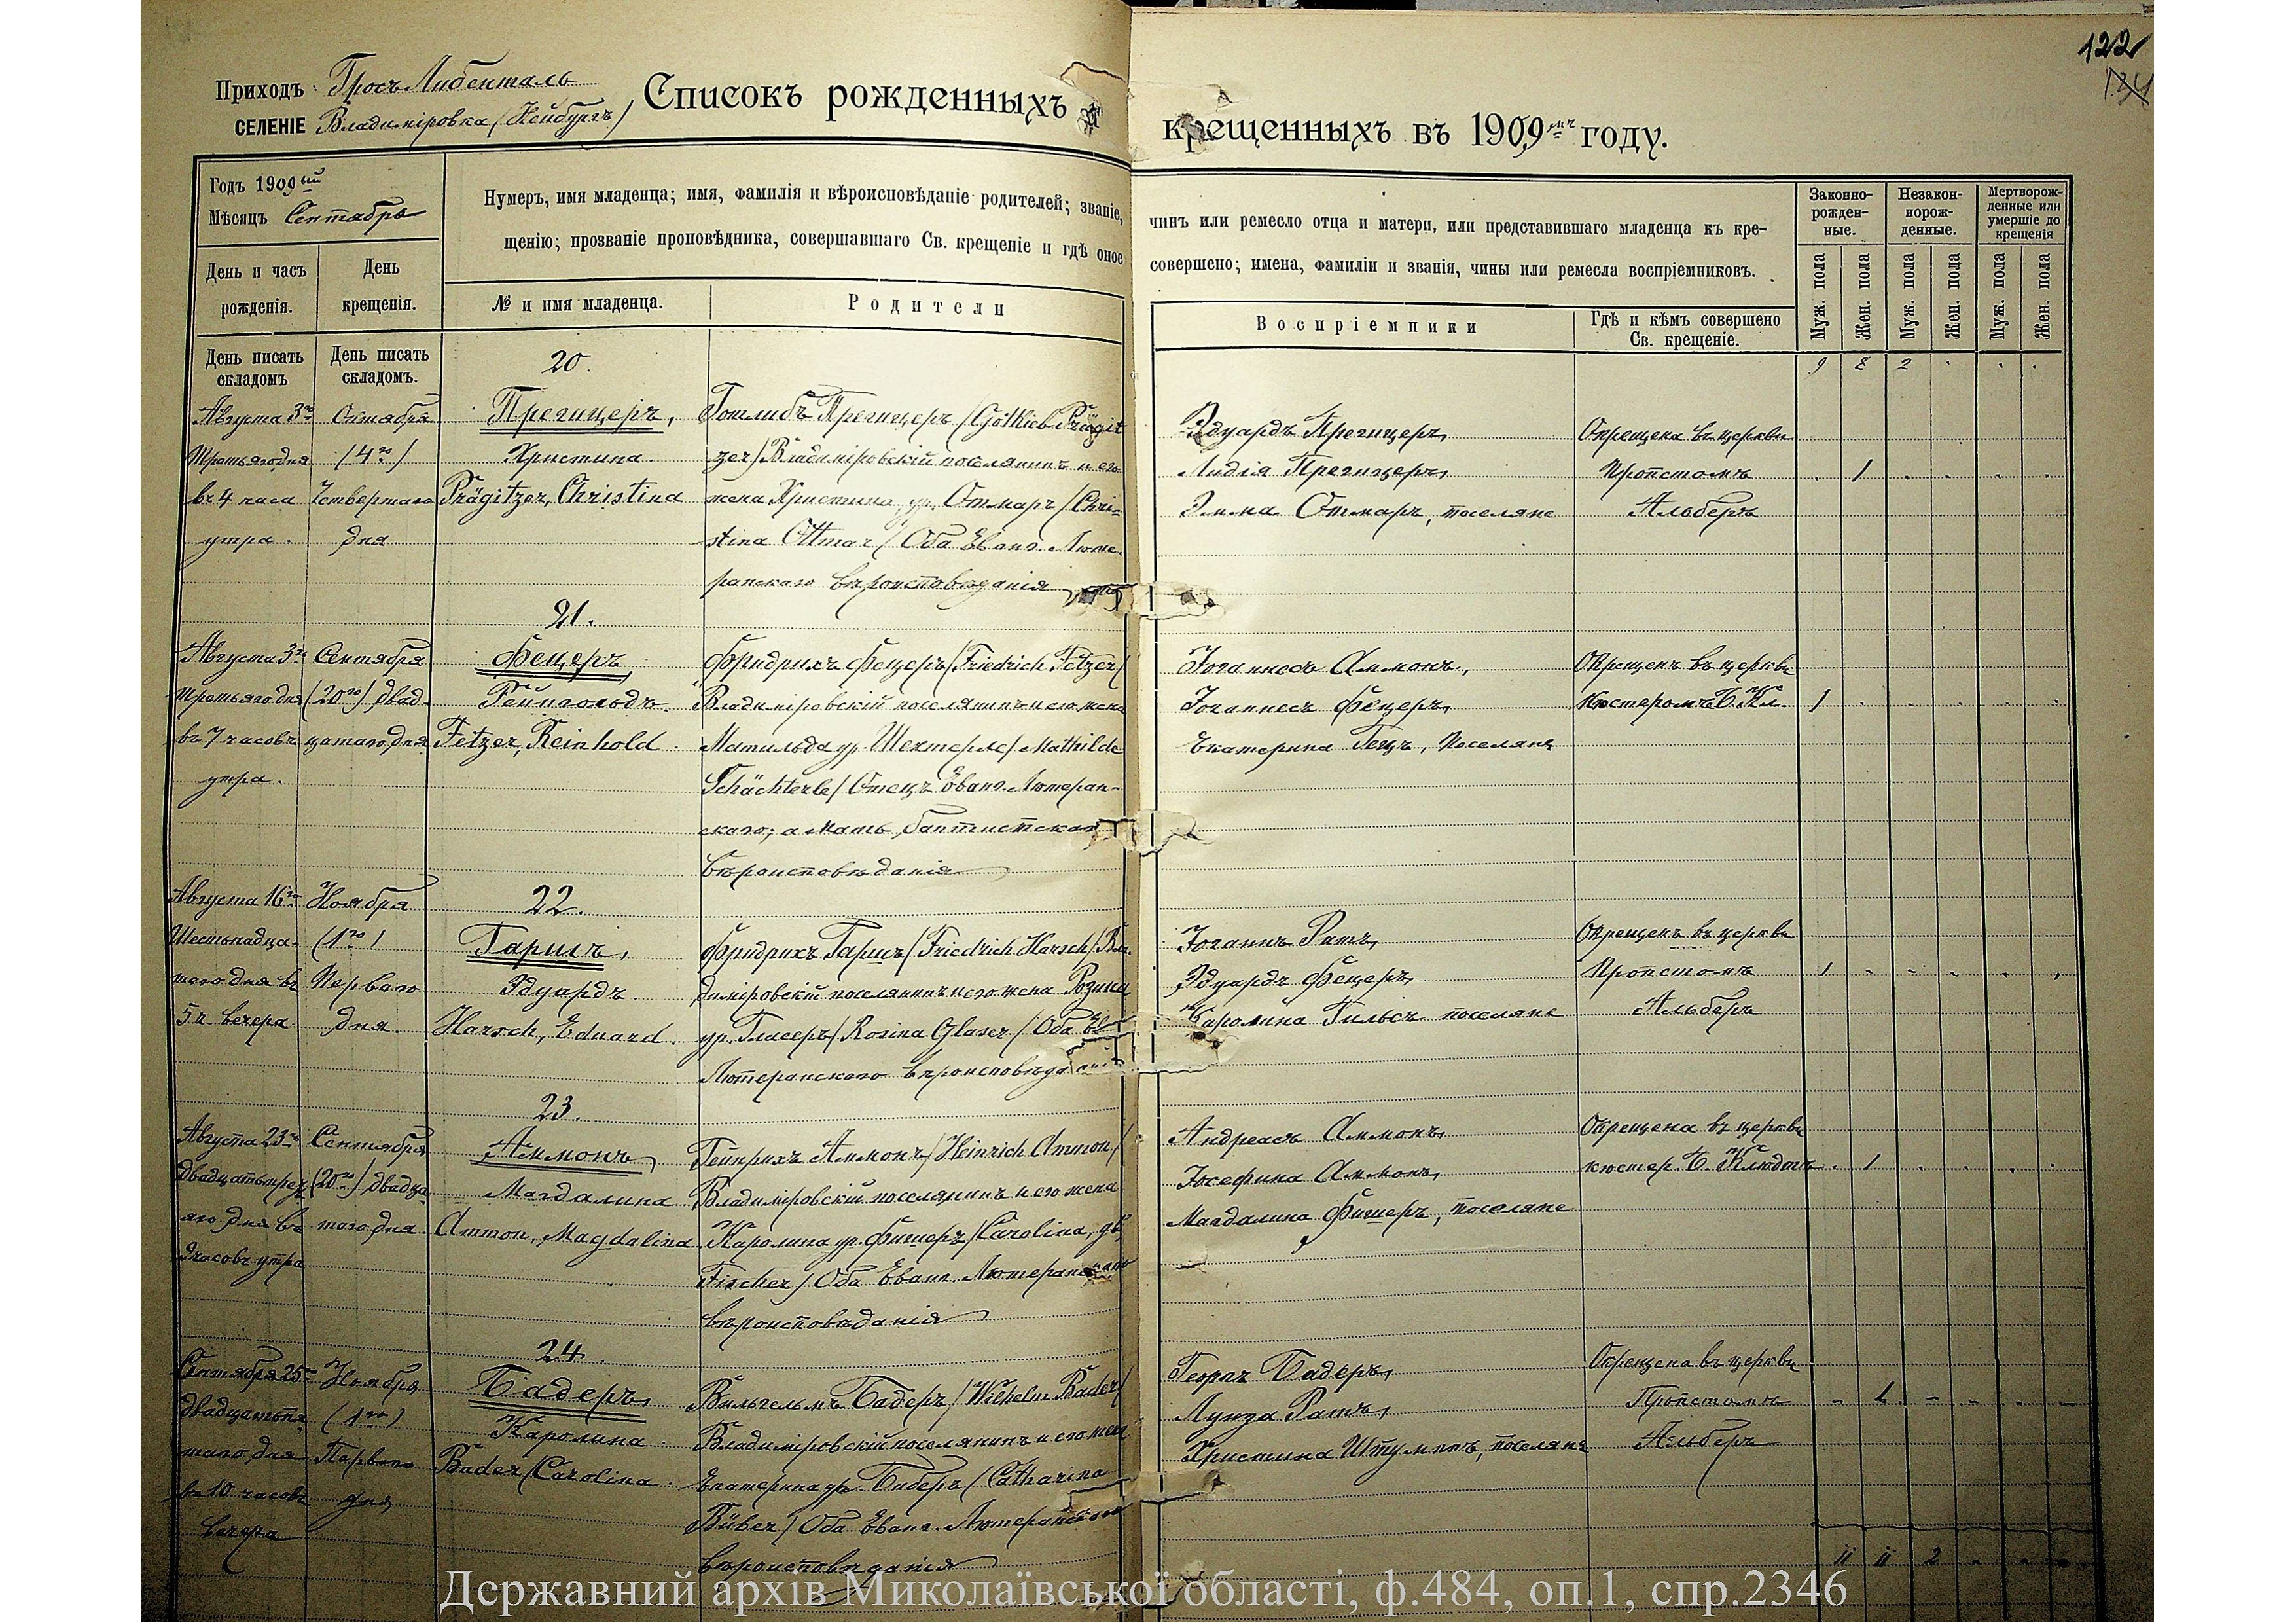 122
134
Приходъ Гросъ Либенталь
СЕЛЕНІЕ Владиміровка (Нейбургъ)
Списокъ рожденныхъ и
крещенныхъ въ 1909мъ году.
Годъ 1909ый
Мѣсяцъ Сентябрь
Нумеръ, имя младенца; имя, фамилія и вѣроисповѣданіе родителей; званіе,
щенію; прозваніе проповѣдника, совершавшаго Св. крещеніе и гдѣ оное
чинъ или ремесло отца и матери, или представившаго младенца къ кре-
совершено; имена, фамиліи и званія, чины или ремесла воспріемниковъ.
Законно-
рожден-
ные.
Незакон-
норож-
денные.
Мертворож-
денные или
умершіе до
крещенія
День и часъ
рожденія.
День
крещенія.
№ и имя младенца.
Родители
Воспріемники
Гдѣ и кѣмъ совершено
Св. крещеніе.
Муж. пола
Жен. пола
Муж. пола
Жен. пола
Муж. пола
Жен. пола
День писать
складомъ
День писать
складомъ.
9 8 2 . . .
20.
Августа 3го
Третьяго дня
въ 4 часа
утра.
Октября
(4го)
Четвертаго
дня
Прегицеръ,
Христина.
Prägitzer, Christina
Готлибъ Прегицеръ (Gottlieb Prägit
zer) Владиміровскій поселянинъ и его
жена Христина, ур. Отмаръ (Chri-
stina Ottmar) Оба Еванг. Люте-
ранскаго вѣроисповѣданія
Эдуардъ Прегицеръ,
Лидія Прегицеръ,
Эмма Отмаръ, поселяне
Окрещена въ церкви
Пропстомъ
Альберъ
. 1 . . . .
21.
Августа 3го
Третьяго дня
въ 7 часовъ
утра.
Сентября
(20го) двад-
цатаго дня
Фецеръ,
Рейнгольдъ.
Fetzer, Reinhold.
Фридрихъ Фецеръ (Friedrich Fetzer)
Владиміровскій поселянинъ и его жена
Матильда ур. Шехтерле (Mathilde
Schächterle) Отецъ Еванг. Лютеран-
скаго, а Мать, баптистскаго
вѣроисповѣданія
Іоганнесъ Аммонъ,
Іоганнесъ Фецеръ,
Екатерина Гецъ, поселяне
Окрещенъ въ церкви
Кюстеромъ Б. Кл.
1 . . . . .
22.
Августа 16го
Шестнадца-
таго дня въ
5 ч вечера
Ноября
(1го)
Перваго
дня.
Гаршъ,
Эдуардъ.
Harsch, Eduard.
Фридрихъ Гаршъ (Friedrich Harsch) Вла-
диміровскій поселянинъ и его жена Розина
ур. Гласеръ (Rosina Glaser) Оба Ев
Лютеранскаго вѣроисповѣданія
Іоганнъ Ратъ,
Эдуардъ Фецеръ,
Каролина Гильсъ поселяне
Окрещенъ въ церкви
Пропстомъ
Альберъ
1 . . . . .
23.
Августа 23го
Двадцатьтреть
яго дня въ
часовъ утра
Сентября
(20го) двадца-
таго дня.
Аммонъ,
Магдалина
Ammon, Magdalina
Гейнрихъ Аммонъ (Heinrich Ammon)
Владиміровскій поселянинъ и его жена
Каролина ур. Фишеръ (Carolina, gb.
Fischer) Оба Еванг. Лютеранскаго
вѣроисповѣданія
Андреасъ Аммонъ,
Іосефина Аммонъ,
Магдалина Фишеръ, поселяне
Окрещена въ церкви
кюстер. Б.
. 1 . . . .
24.
Сентября 25го
двадцатьпя
таго дня
въ 10 часовъ
вечера
Ноября
(1го)
Перваго
дня
Бадеръ,
Каролина.
Bader, Carolina.
Вильгельмъ Бадеръ (Wilhelm Bader)
Владиміровскій поселянинъ и его жена
Екатерина ур. Биберъ (Catharina
Büber) Оба Еванг. Лютеранскаго
вѣроисповѣданія
Георгъ Бадеръ,
Луиза Ратъ,
Христина Штумппъ, поселяне
Окрещена въ церкви
Пропстомъ
Альберъ
- 1 - - . -
11 11 2 . . .
Державний архів Миколаївської області, ф.484, оп.1, спр.2346